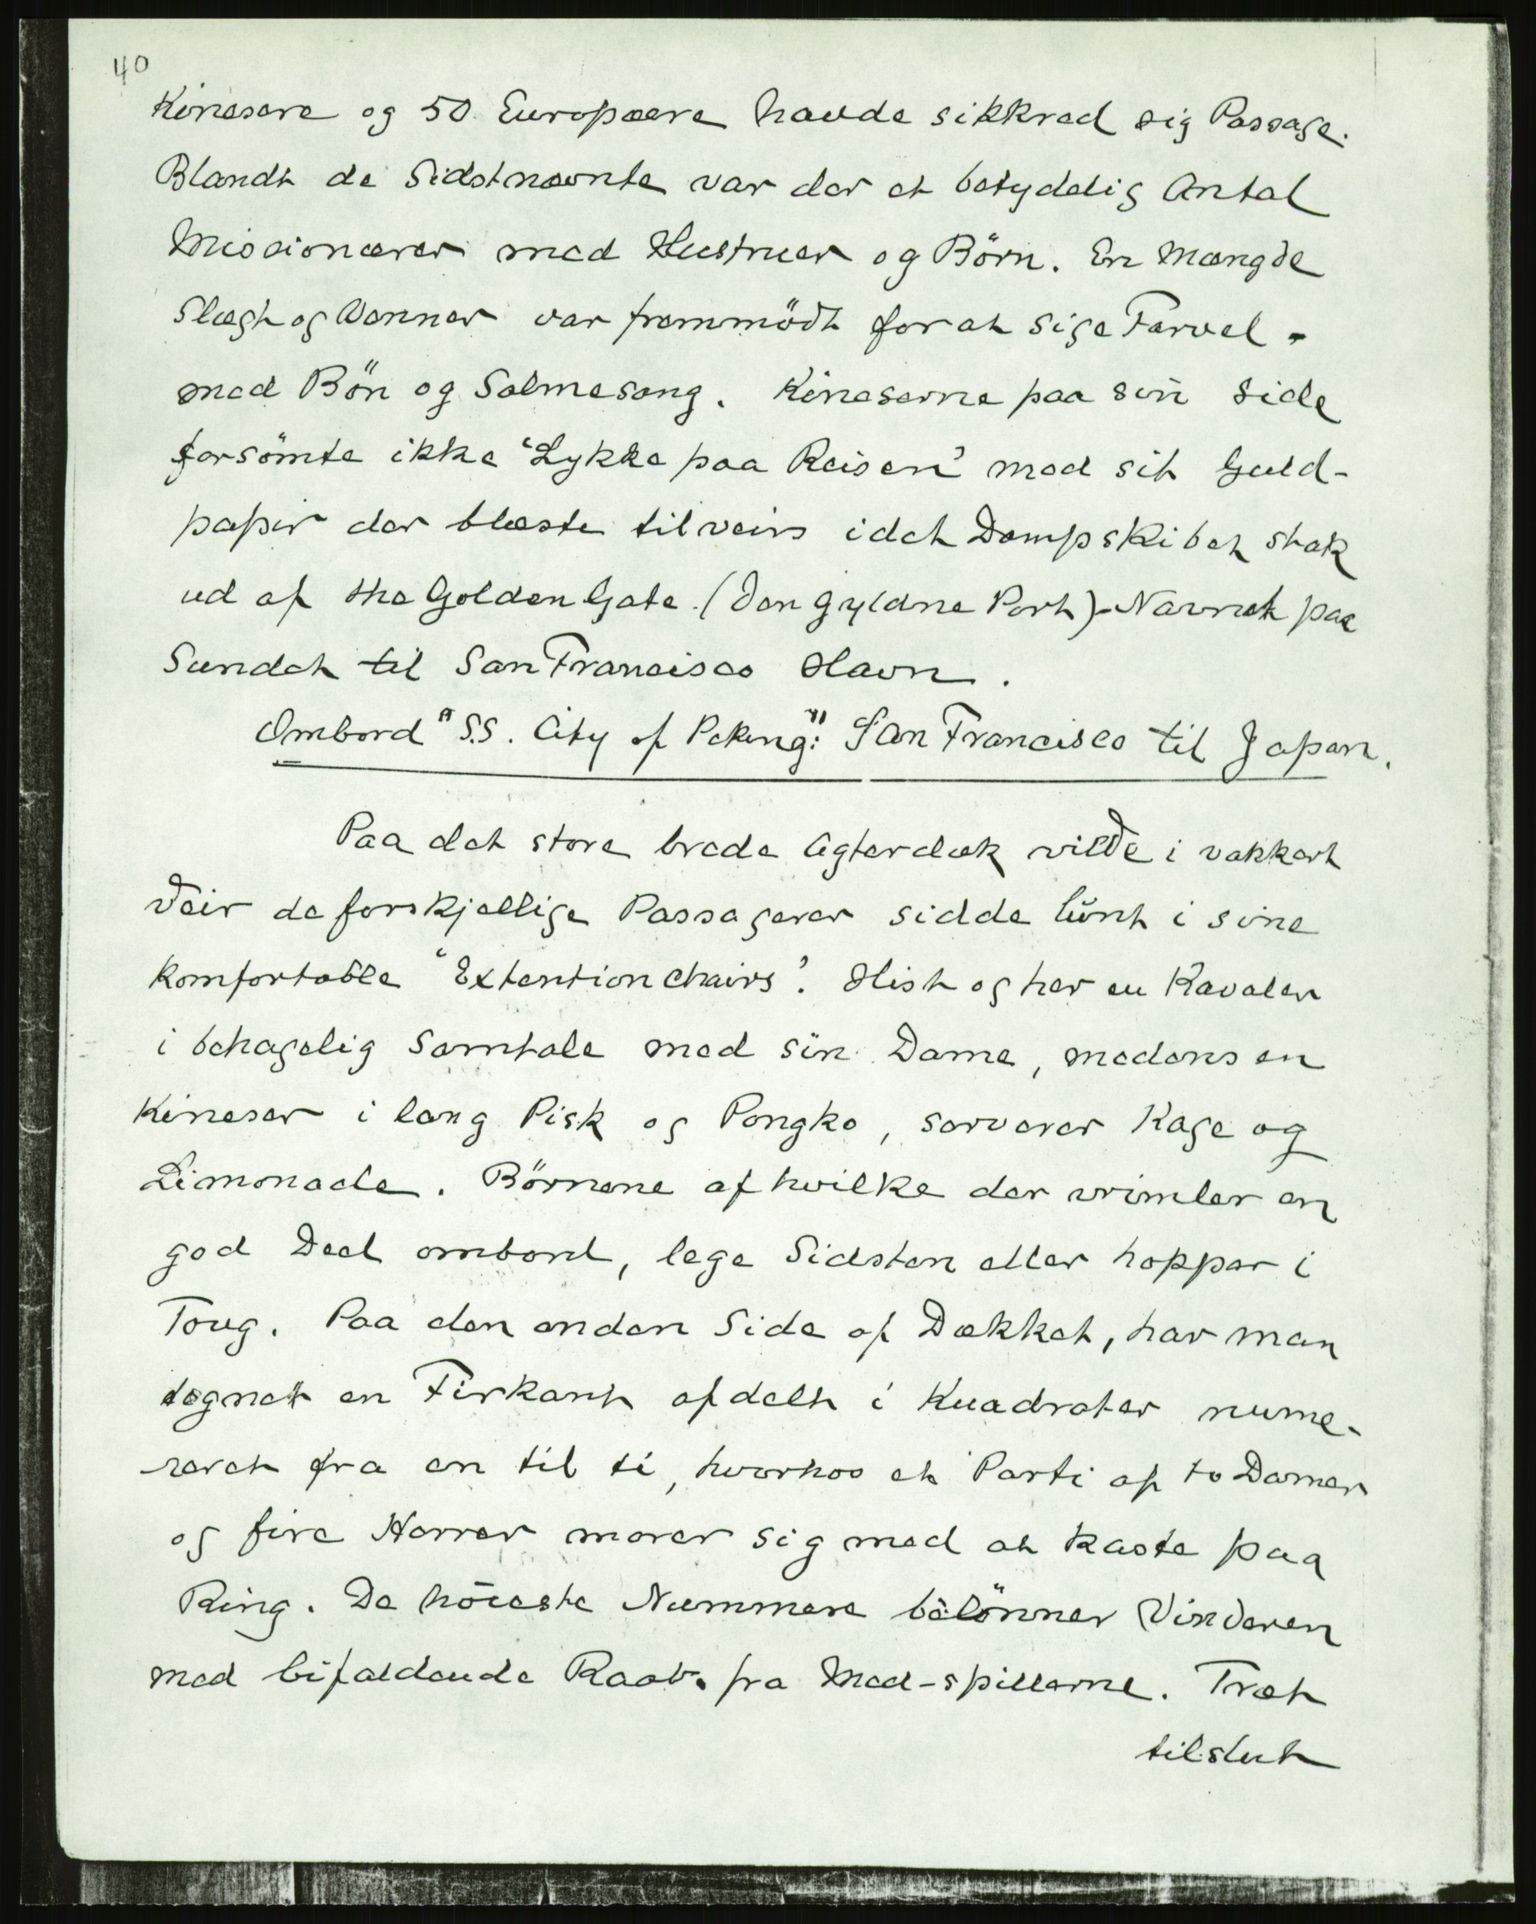 40
Kinesere og 50 Europæere havde sikkred sig Passage.
Blandt de Sidstnævnte var der et betydelig Antal
Missionærer med Hustruer og Börn. En Mængde
Slægt og Venner var fremmödt for at sige Farvel -
med Bön og Salmesang. Kineserne paa sin Side
forsömte ikke 'Lykke paa Reisen' med sit Guld-
papir der blæste tilveirs idet Dampskibet stak
ud af the Golden Gate. (Den gyldne Port) - Navnet paa
Sundet til San Francisco Havn.
Ombord "S.S. City of Peking": San Francisco til Japan.
Paa det store brede Agterdæk vilde i vakkert
Veir de forskjellige Passagerer sidde lunt i sine
komfortable 'Extention chairs'. Hist og her en Kavaler
i behagelig Samtale med sin Dame, medens en
Kineser i lang Pisk og Pongko, serverer Kage og
Limonade. Börnene af hvilke der vrimler en
god Deel ombord, lege Sidsten eller hopper i
Toug. Paa den anden Side af Dækket, har man
tegnet en Firkant afdelt i Kuadrater nume-
reret fra en til ti, hvorhos et Parti af to Damer
og fire Herrer morer sig med at kaste paa
Ring. De höieste Nummere belönner Vinderen
med bifaldende Raab. fra Med-spillerne. Træt
tilslut